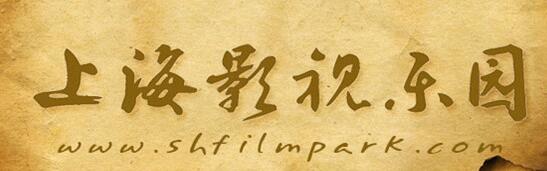 上海影视乐园
www.shfilmpark.com